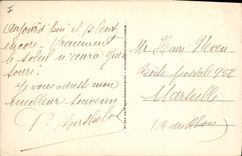 Aujourd'hui il pleut
encore. Vraiment
le soleil n'aura guère
souri.
J'y vous adresse mon
meilleur souvenir
P. Berthelot
Mr Henri Neveu
Boîte postale 952
Marseille
B. du Rhône